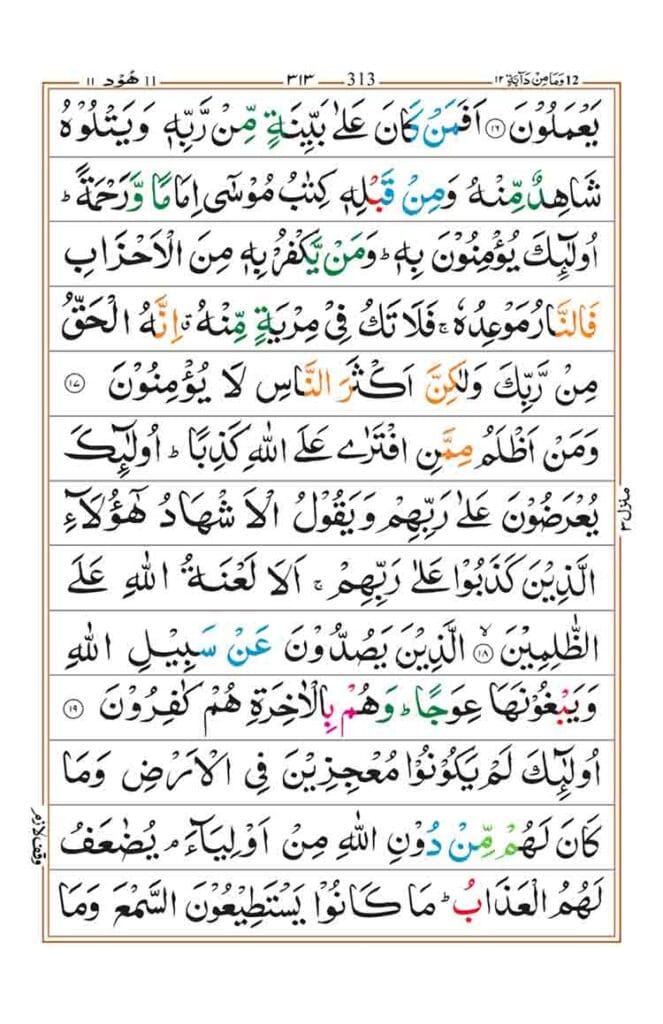 12 وَمَا مِنْ دَآبَّةٍ ١٢ — 313 — ٣١٣ — 11 هُوْد ١١
يَعْمَلُوْنَ ۝١٦ اَفَمَنْ كَانَ عَلٰى بَيِّنَةٍ مِّنْ رَّبِّهٖ وَيَتْلُوْهُ
شَاهِدٌ مِّنْهُ وَمِنْ قَبْلِهٖ كِتٰبُ مُوْسٰٓى اِمَامًا وَّرَحْمَةً ؕ
اُولٰٓئِكَ يُؤْمِنُوْنَ بِهٖ ؕ وَمَنْ يَّكْفُرْ بِهٖ مِنَ الْاَحْزَابِ
فَالنَّارُ مَوْعِدُهٗ ۚ فَلَا تَكُ فِىْ مِرْيَةٍ مِّنْهُ ۗ اِنَّهُ الْحَقُّ
مِنْ رَّبِّكَ وَلٰكِنَّ اَكْثَرَ النَّاسِ لَا يُؤْمِنُوْنَ ۝١٧
وَمَنْ اَظْلَمُ مِمَّنِ افْتَرٰى عَلَى اللّٰهِ كَذِبًا ؕ اُولٰٓئِكَ
يُعْرَضُوْنَ عَلٰى رَبِّهِمْ وَيَقُوْلُ الْاَشْهَادُ هٰٓؤُلَآءِ
الَّذِيْنَ كَذَبُوْا عَلٰى رَبِّهِمْ ۚ اَلَا لَعْنَةُ اللّٰهِ عَلَى
الظّٰلِمِيْنَ ۙ۝١٨ الَّذِيْنَ يَصُدُّوْنَ عَنْ سَبِيْلِ اللّٰهِ
وَيَبْغُوْنَهَا عِوَجًا ؕ وَهُمْ بِالْاٰخِرَةِ هُمْ كٰفِرُوْنَ ۝١٩
اُولٰٓئِكَ لَمْ يَكُوْنُوْا مُعْجِزِيْنَ فِى الْاَرْضِ وَمَا
كَانَ لَهُمْ مِّنْ دُوْنِ اللّٰهِ مِنْ اَوْلِيَآءَ ۘ يُضٰعَفُ
لَهُمُ الْعَذَابُ ؕ مَا كَانُوْا يَسْتَطِيْعُوْنَ السَّمْعَ وَمَا
منزل ٣
وقف لازم